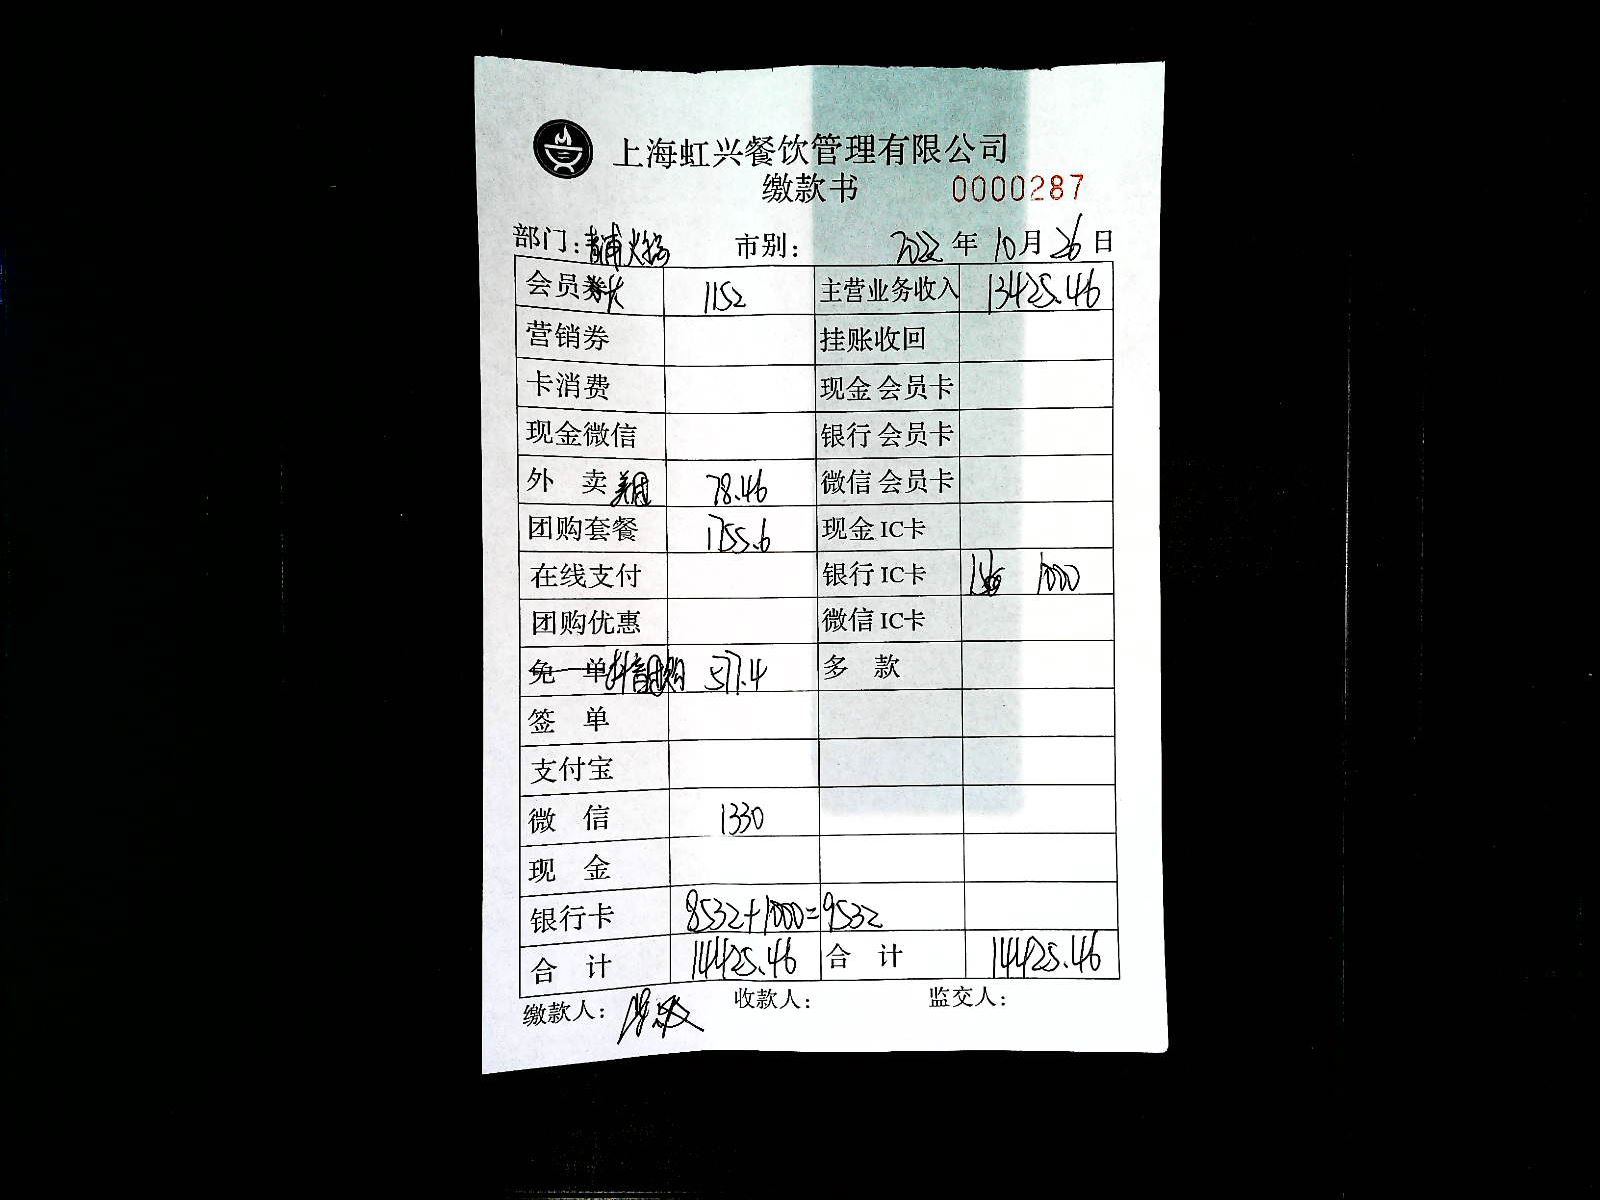 上海虹兴餐饮管理有限公司
缴款书 0000287
部门: 青浦火锅 市别: 2022 年 10 月 26 日
会员卡 1152 主营业务收入 13425.46
营销券 挂账收回
卡消费 现金会员卡
现金微信 银行会员卡
外卖 美团 78.46 微信会员卡
团购套餐 1755.6 现金IC卡
在线支付 银行IC卡 1000
团购优惠 微信IC卡
免单 抖音团购 577.4 多款
签单
支付宝
微信 1330
现金
银行卡 8532+1000=9532
合计 14425.46 合计 14425.46
缴款人: 收款人: 监交人: